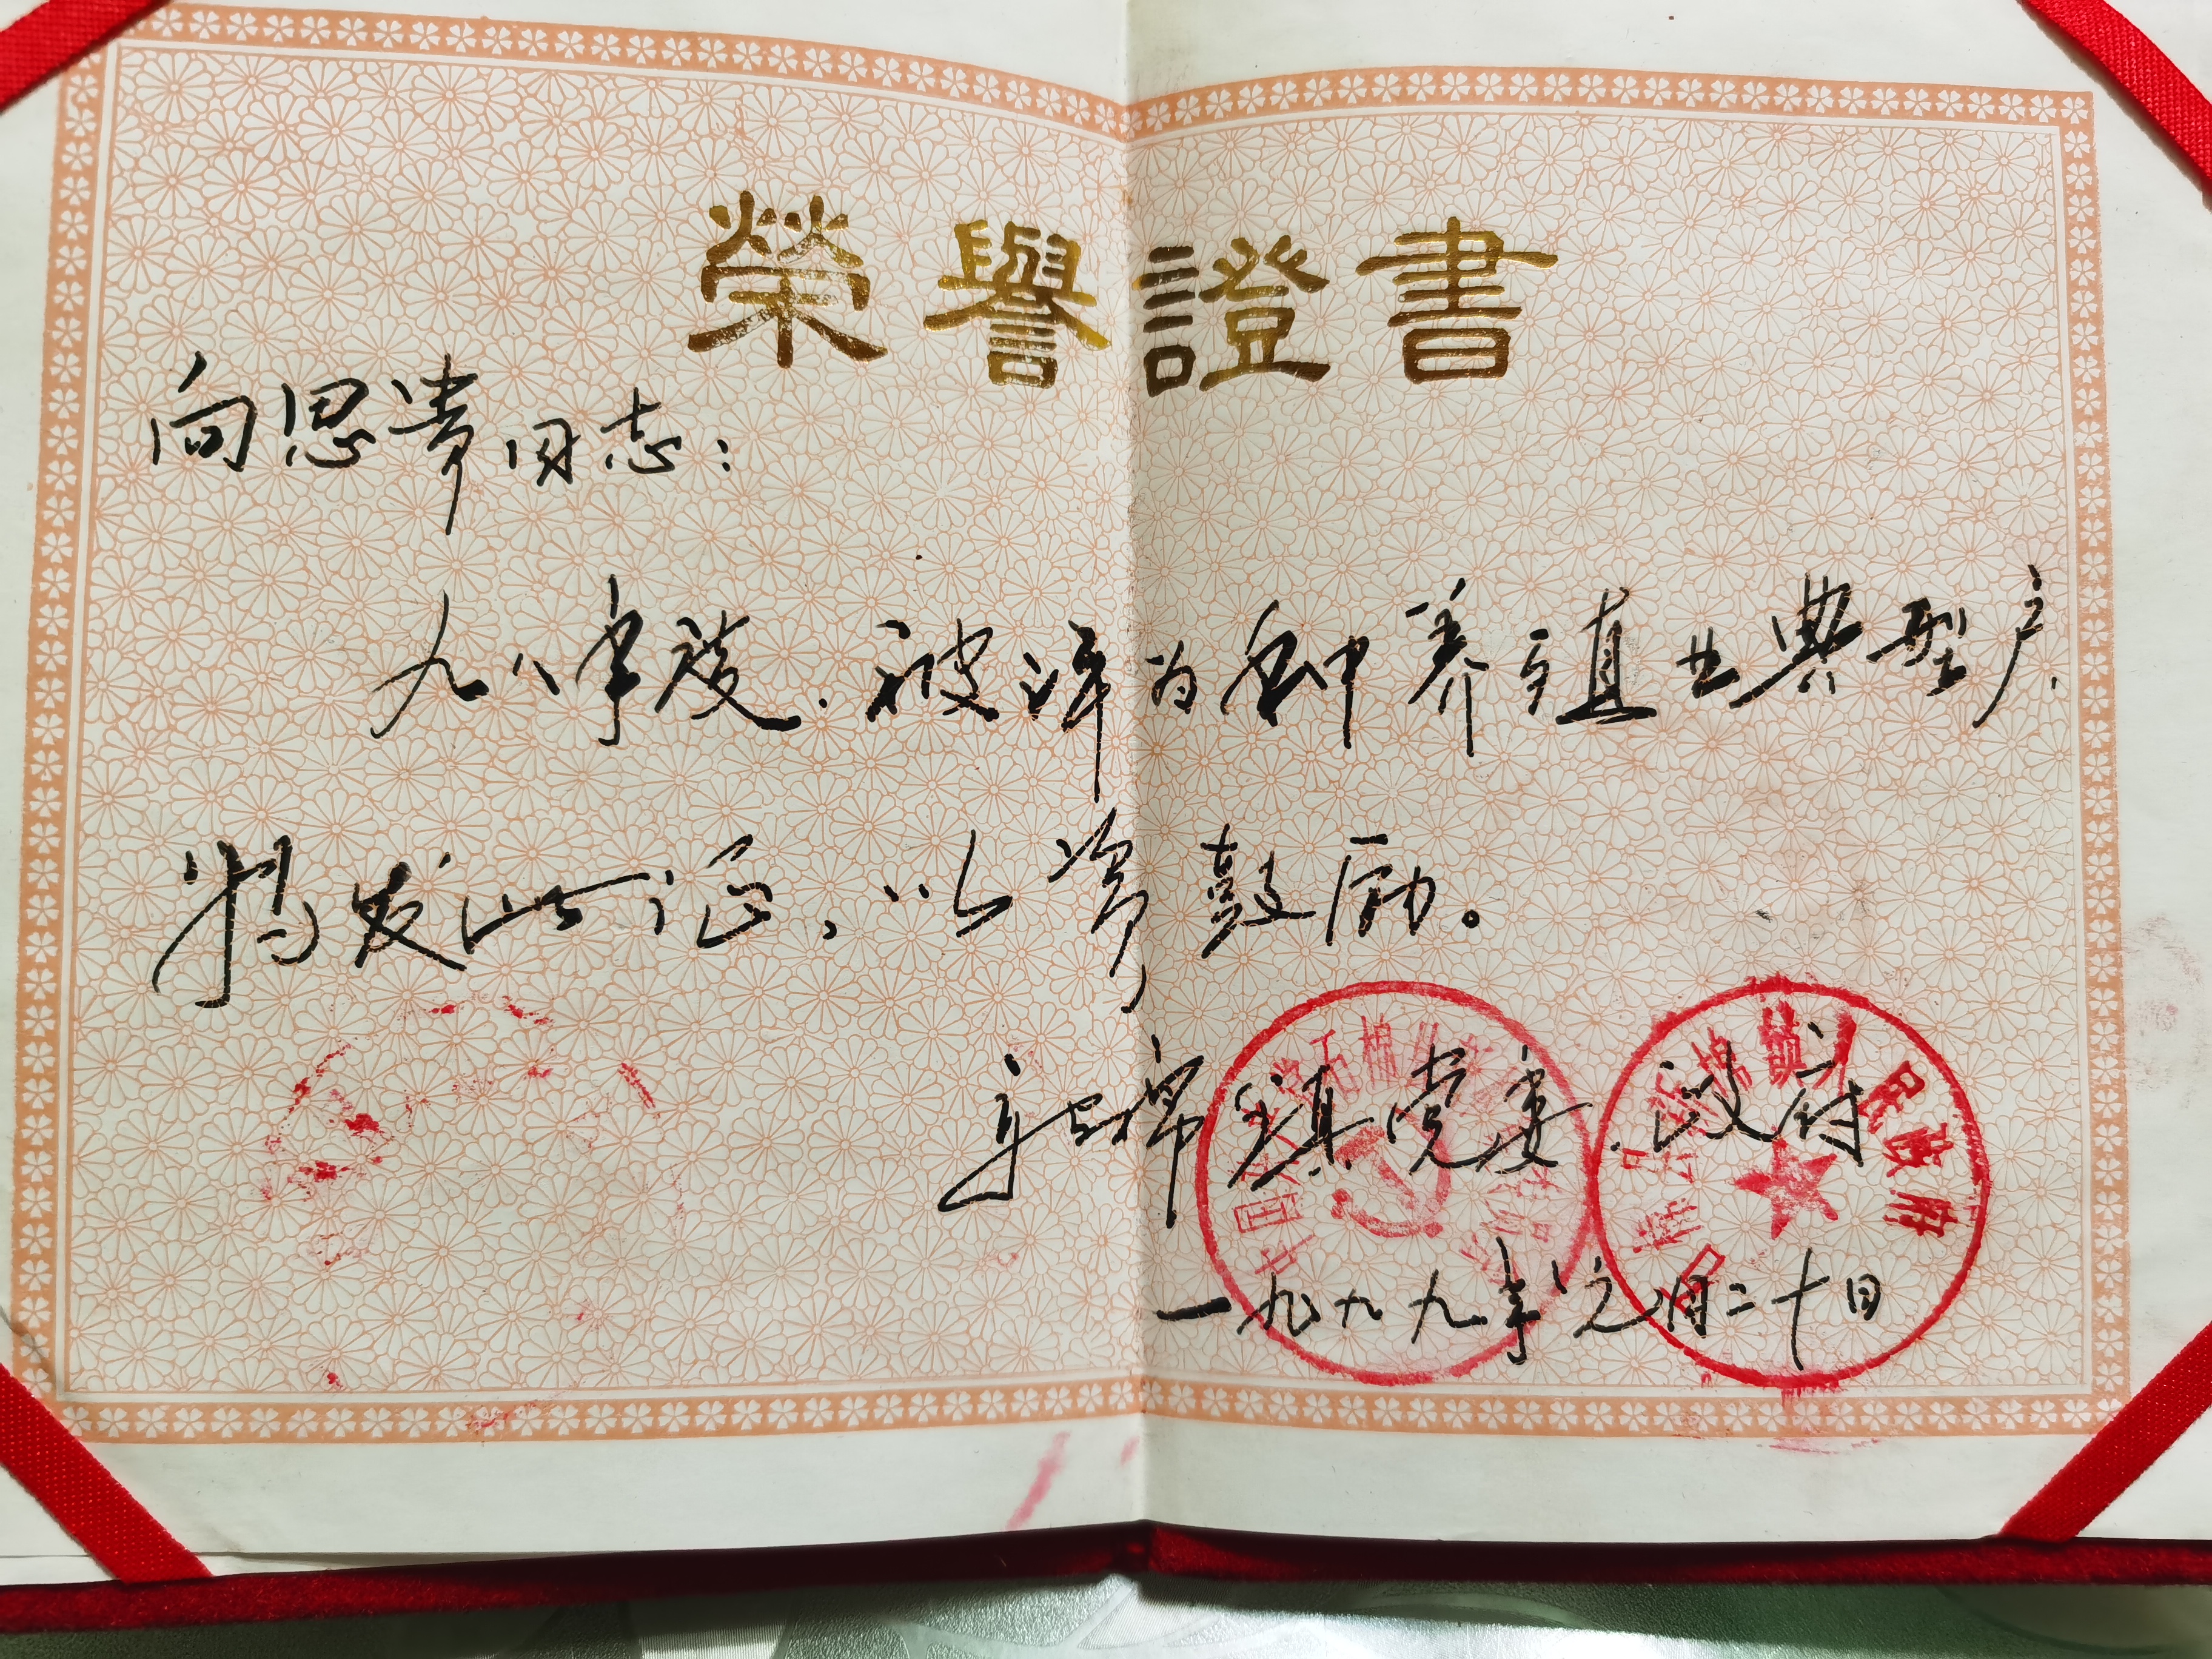 榮譽證書
向思贵同志：
九八年度，被评为种养殖业典型户，
特发此证，以资鼓励。
新棉镇党委、政府
一九九九年元月二十日
棉镇人民政府